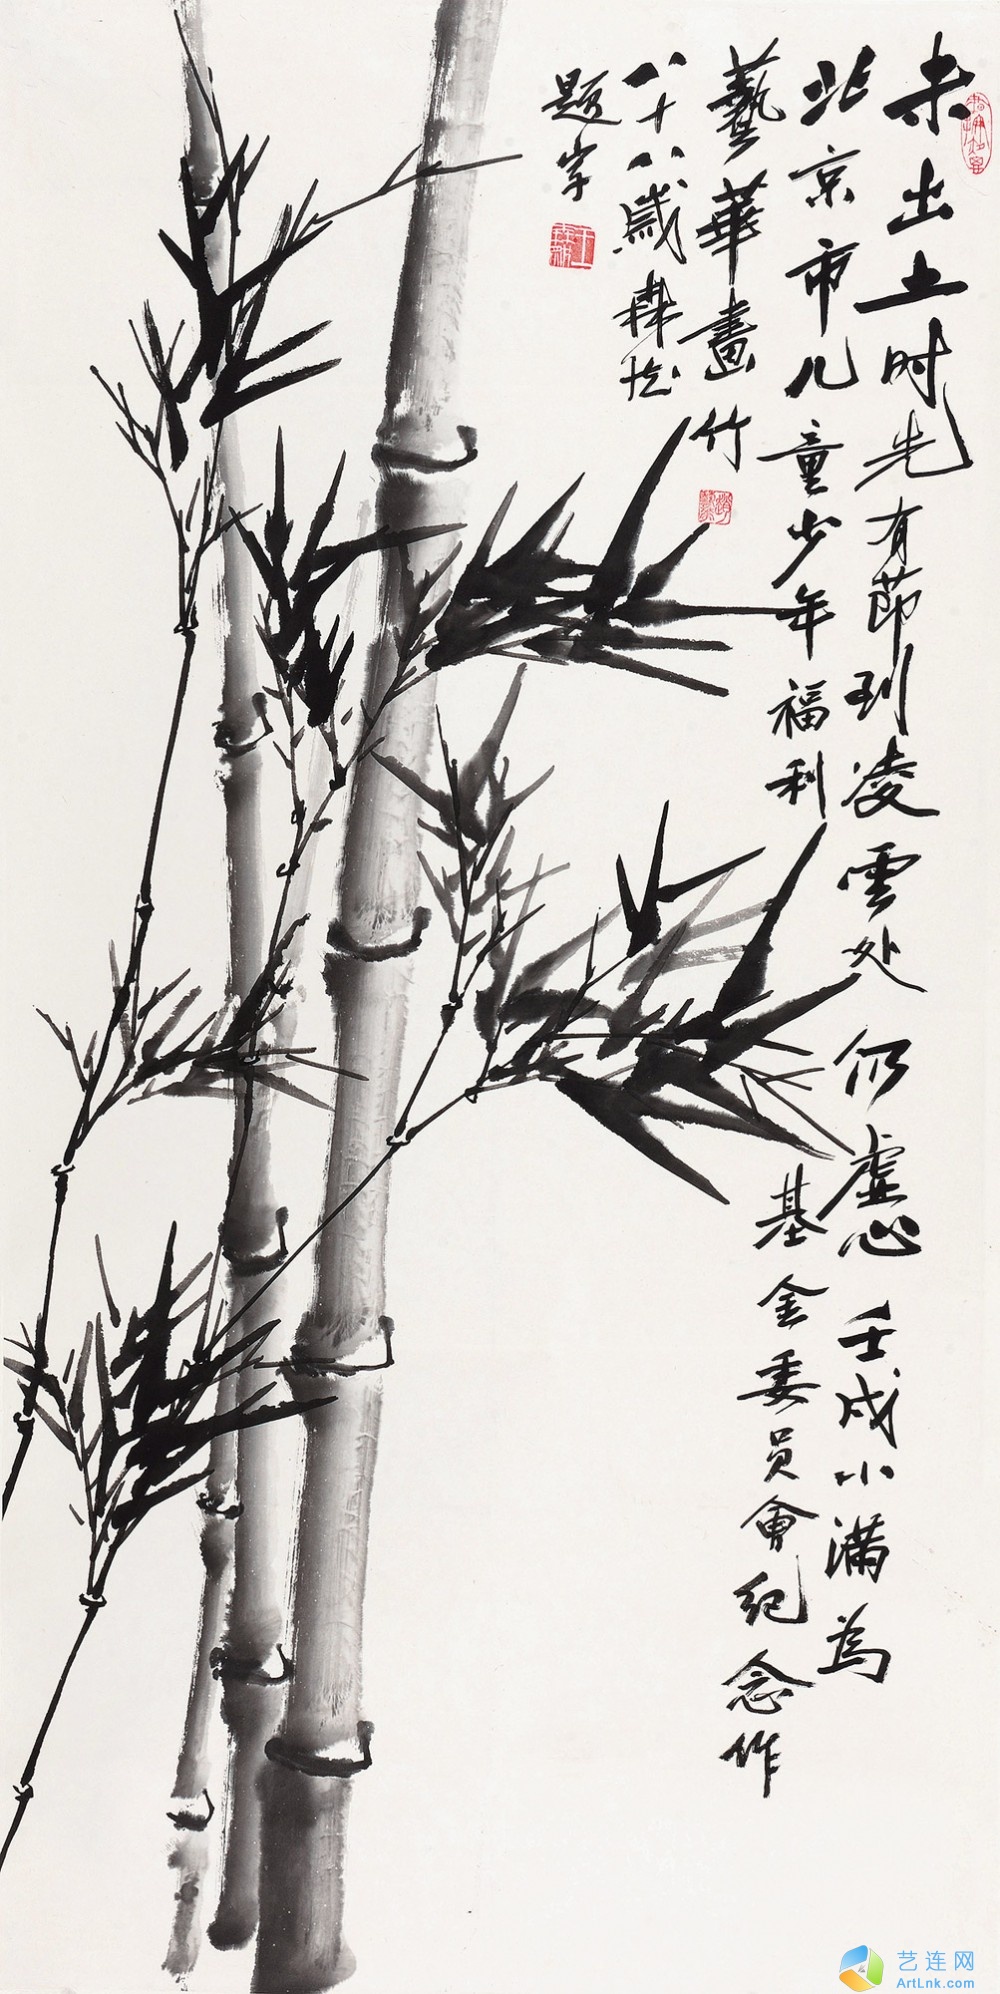 未出土时先有节到凌雲处仍虚心 壬戌小满為
北京市儿童少年福利基金委員會纪念作
藝華畫竹
八十八歲
題字
艺连网
ArtLnk.com